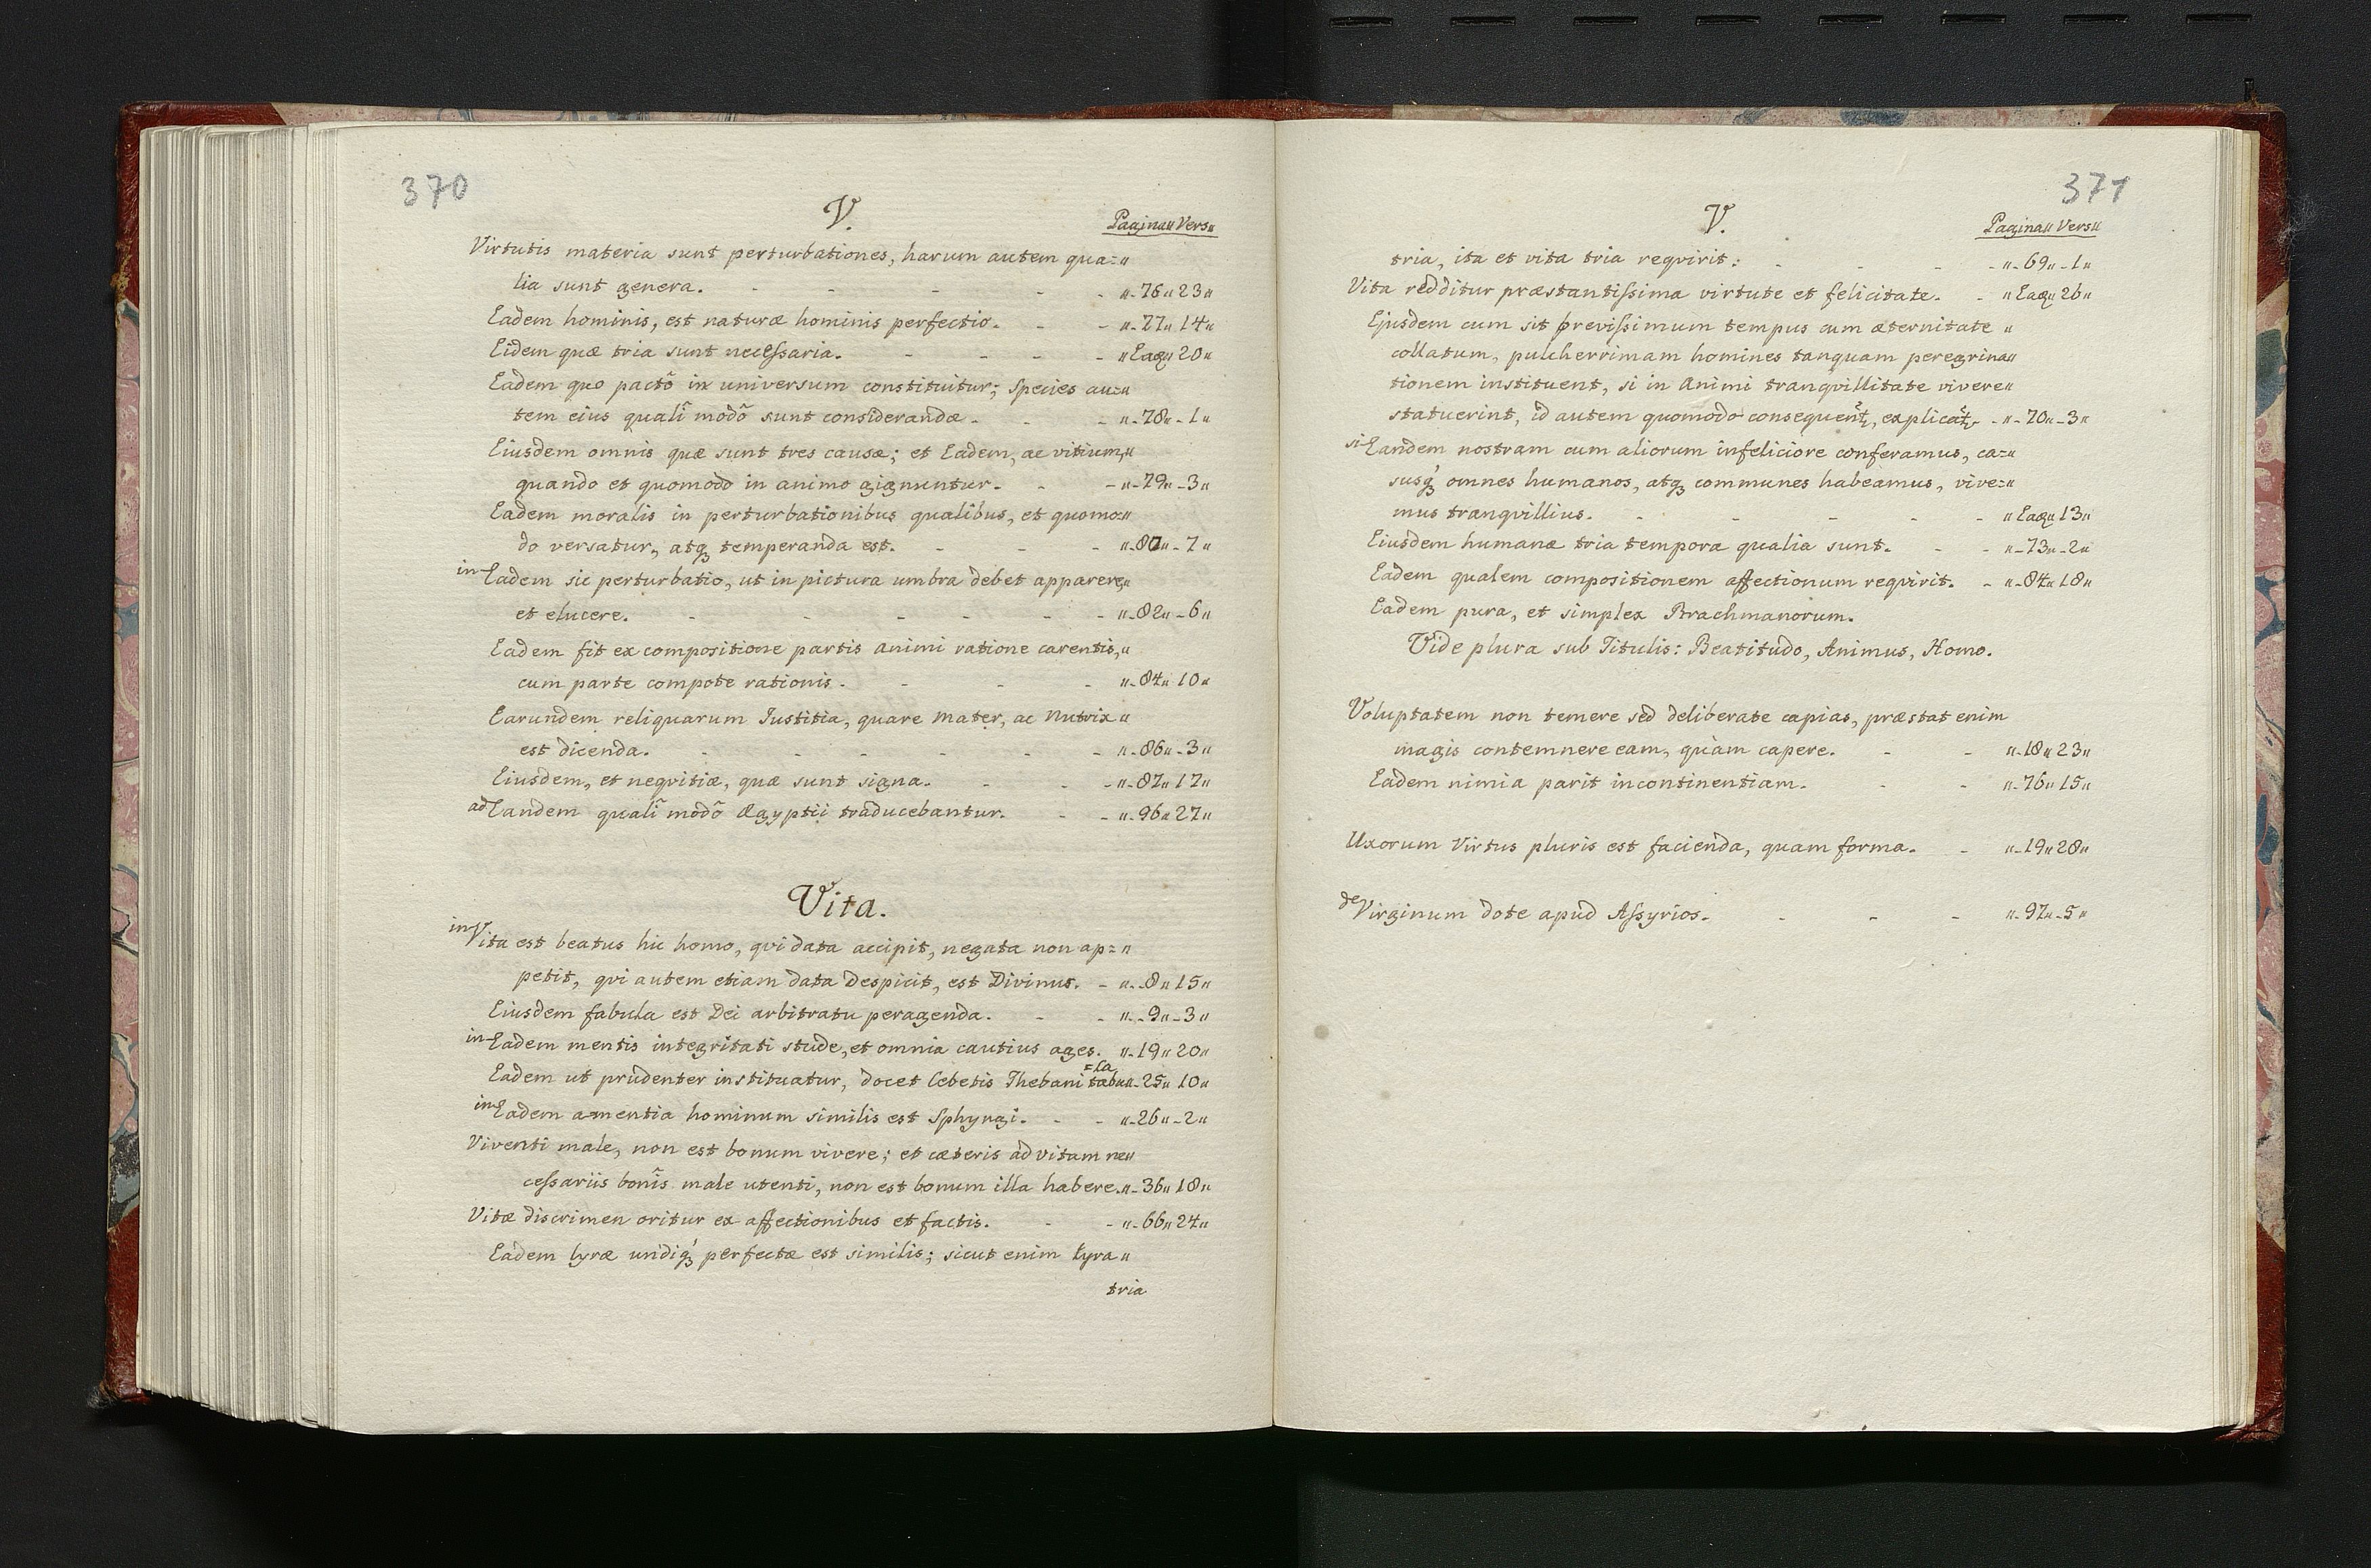 370
V.
Pagina〃 Vers〃
Virtutis materia sunt perturbationes, harum autem qua=〃
lia sunt genera. - - - - - 〃-76〃23〃
Eadem hominis, est naturæ hominis perfectio. - - 〃-77〃14〃
Eidem quæ tria sunt necessaria. - - - - 〃Eaq〃20〃
Eadem quo pactô in universum constituitur; Species au=〃
tem eius qualî modô sunt considerandæ. - - 〃-78〃-1〃
Eiusdem omnis quæ sunt tres causæ; et Eadem, ac vitium,〃
quando et quomodo in animo gignuntur. - - 〃-79〃-3〃
Eadem moralis in perturbationibus qualibus, et quomo=〃
do versatur, atqȝ temperanda est. - - - 〃-80〃-7〃
in Eadem sic perturbatio, ut in pictura umbra debet apparere,〃
et elucere. - - - - - - 〃-82〃-6〃
Eadem fit ex compositione partis animi ratione carentis,〃
cum parte compote rationis. - - - 〃-84〃10〃
Earundem reliquarum Justitia, quare Mater, ac Nutrix〃
est dicenda. - - - - - - 〃-86〃-3〃
Eiusdem, et neqvitiæ, quæ sunt signa. - - - 〃-87〃17〃
ad Eandem qualî modô Ægyptii traducebantur. - - 〃-96〃27〃
Vita.
in Vita est beatus hic homo, qvi data accipit, negata non ap=〃
petit, qvi autem etiam data Despicit, est Divinus. - 〃-8〃15〃
Eiusdem fabula est Dei arbitratu peragenda. - - 〃-9〃-3〃
in Eadem mentis integritati stude, et omnia cautius ages. 〃-19〃20〃
Eadem ut prudenter instituatur, docet Cebetis Thebani tabu=la 〃-25〃10〃
in Eadem amentia hominum similis est Sphyngi. - - 〃-26〃-2〃
Viventi male, non est bonum vivere; et cæteris ad vitam ne〃
cessariis bonîs male utenti, non est bonum illa habere. 〃-36〃18〃
Vitæ discrimen oritur ex affectionibus et factis. - - 〃-66〃24〃
Eadem lyræ undiqȝ perfectæ est similis; sicut enim lyra〃
tria
371
V.
Pagina〃 Vers〃
tria, ita et vita tria reqvirit: - - - - 〃-69〃-1〃
Vita redditur præstantissima virtute et felicitate. - 〃Eaq〃26〃
Ejusdem cum sit brevissimum tempus cum æternitate〃
collatum, pulcherrimam homines tanquam peregrina〃
tionem instituent, si in Animi tranqvillitate vivere〃
statuerint, id autem quomodo consequent, explicat - 〃-70〃-3〃
si Eandem nostram cum aliorum infeliciore conferamus, ca=〃
susqȝ omnes humanos, atqȝ communes habeamus, vive=〃
mus tranqvillius. - - - - - 〃Eaq〃13〃
Eiusdem humanæ tria tempora qualia sunt. - - 〃-73〃-2〃
Eadem qualem compositionem affectionum reqvirit. - 〃-84〃18〃
Eadem pura, et simplex Brachmanorum.
Vide plura sub Titulis: Beatitudo, Animus, Homo.
Voluptatem non temere sed deliberate capias, præstat enim
magis contemnere eam, quàm capere. - - 〃-18〃23〃
Eadem nimia parit incontinentiam. - - 〃-76〃15〃
Uxorum Virtus pluris est facienda, quam forma. - 〃-19〃28〃
de Virginum dote apud Assyrios. - - - 〃-97〃-5〃